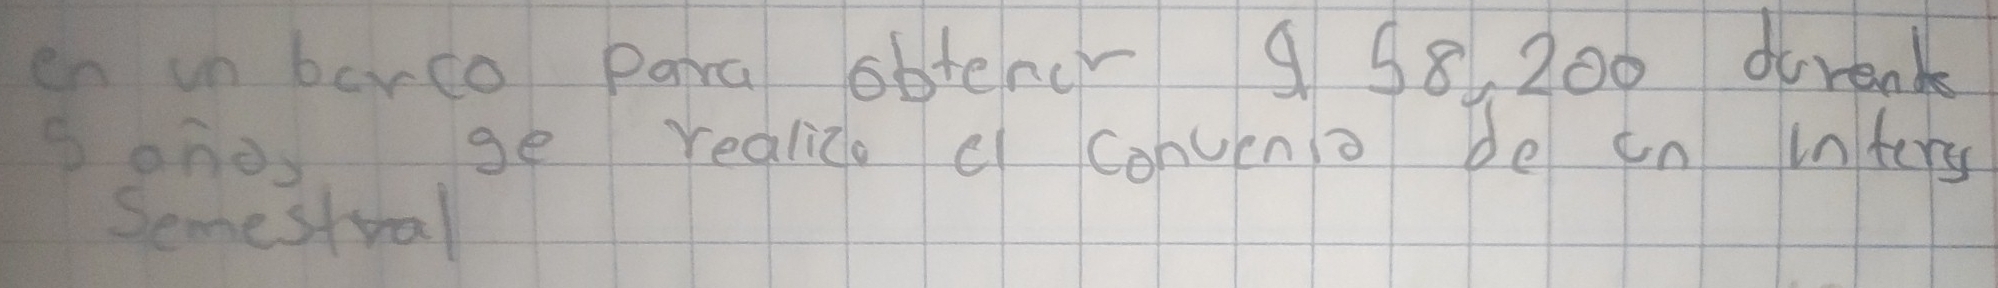 en un banco para obtener $ 58,200 durante
5 años se realizo el convenio de un interes
Semestral